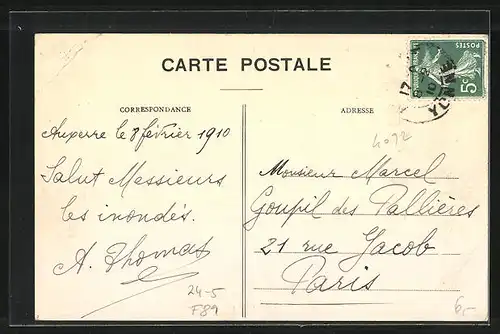 CARTE POSTALE
CORRESPONDANCE
ADRESSE
POSTES
5c
YONNE
4092
Auxerre le 8 février 1910
Salut Messieurs
les inondés.
A. Thomas
Monsieur Marcel
Goupil des Pallières
21 rue Jacob
Paris
24-5
F89
6,-